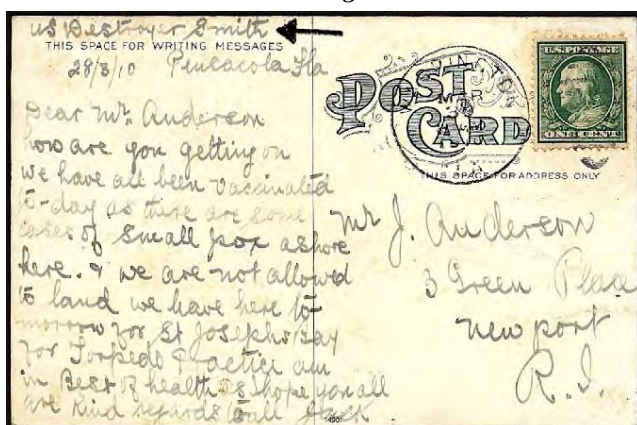 US Destroyer Smith
THIS SPACE FOR WRITING MESSAGES
28/3/10 Pensacola Fla
Dear Mr. Anderson
how are you getting on
we have all been vaccinated
to-day as there are some
cases of small pox ashore
here. & we are not allowed
to land we have here to-
morrow for St Josephs Bay
for Torpedo Practice am
in Best of health as I hope you all
are Kind regards to all Jack
POST CARD
U.S. POSTAGE
ONE CENT
THIS SPACE FOR ADDRESS ONLY
Mr J. Anderson
3 Green Place
newport
R.I.